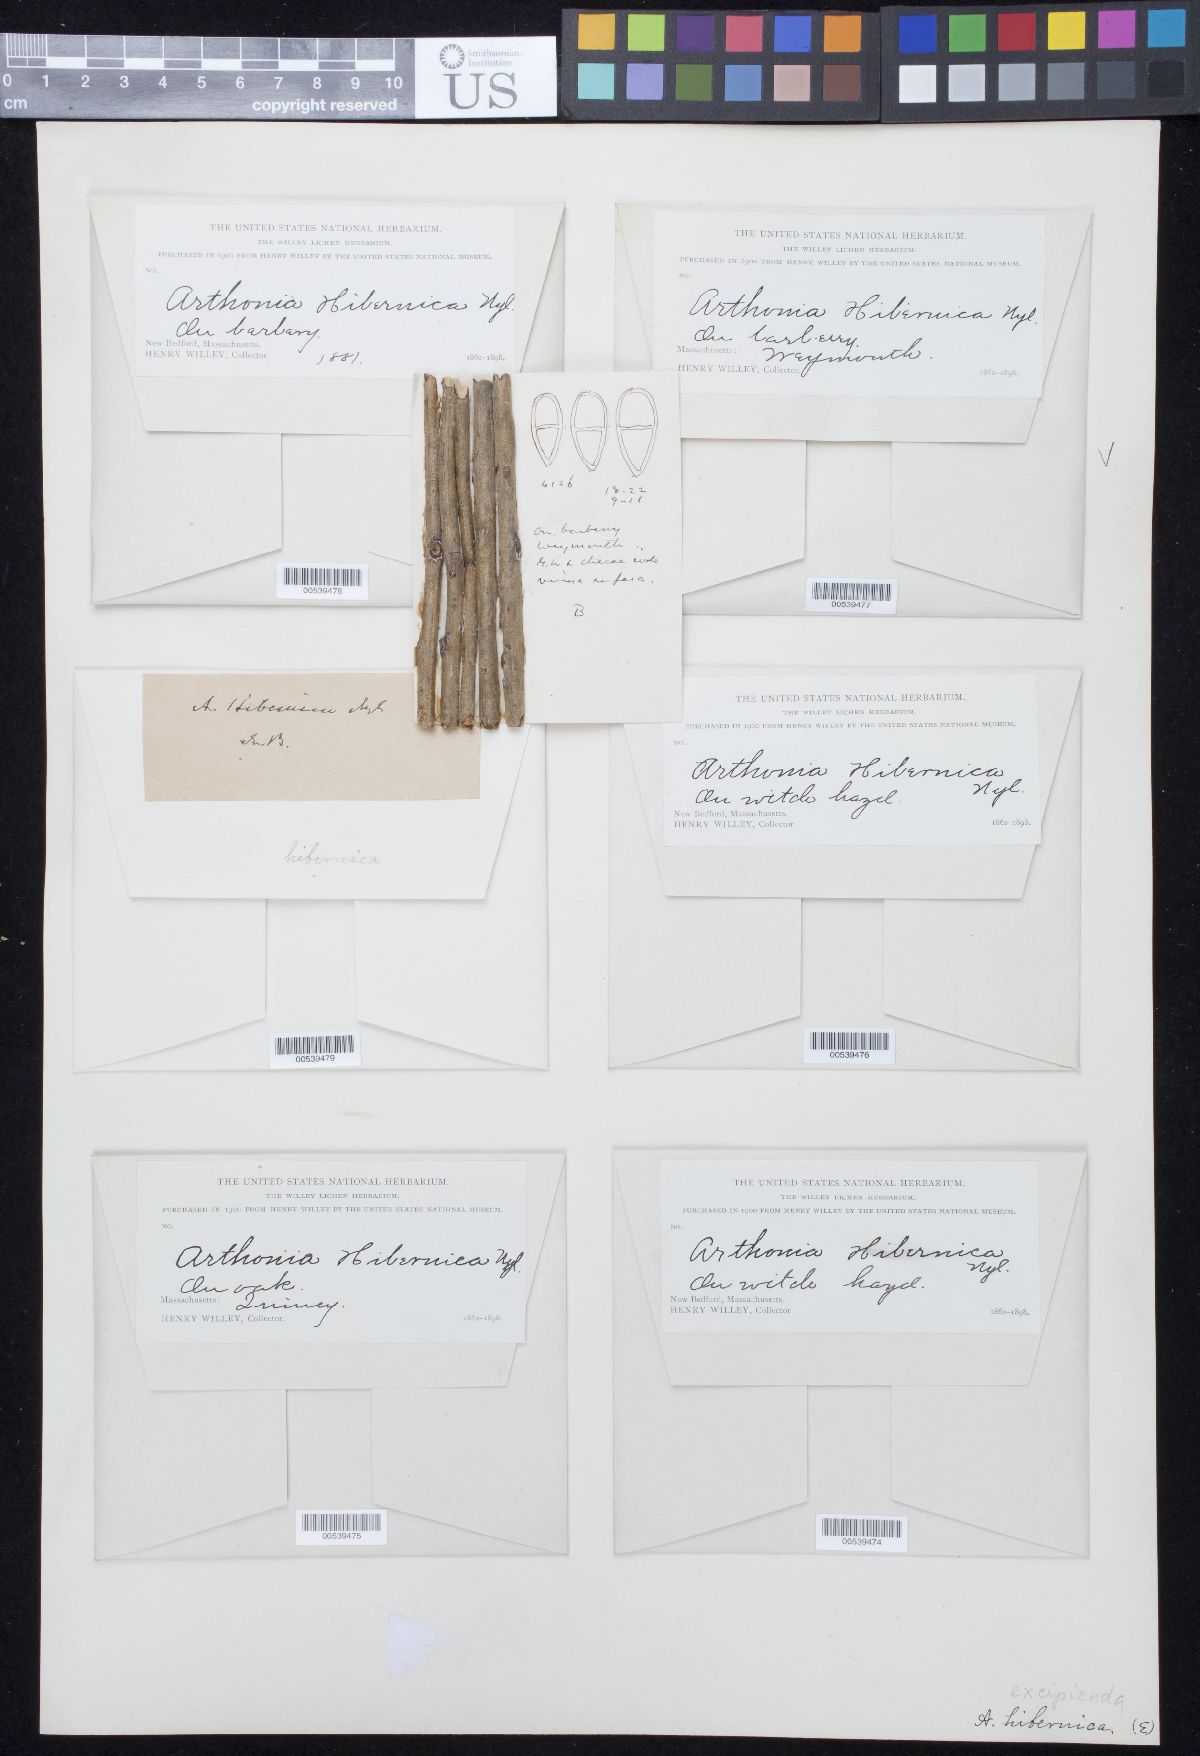 0 1 2 3 4 5 6 7 8 9 10
cm
copyright reserved
Smithsonian
Institution
US
THE UNITED STATES NATIONAL HERBARIUM.
THE WILLEY LICHEN HERBARIUM.
PURCHASED IN 1900 FROM HENRY WILLEY BY THE UNITED STATES NATIONAL MUSEUM.
NO.
Arthonia Hibernica Nyl.
On barbery.
New Bedford, Massachusetts.
HENRY WILLEY, Collector. 1881. 1862-1898.
00539478
THE UNITED STATES NATIONAL HERBARIUM.
THE WILLEY LICHEN HERBARIUM.
PURCHASED IN 1900 FROM HENRY WILLEY BY THE UNITED STATES NATIONAL MUSEUM.
NO.
Arthonia Hibernica Nyl.
On barberry.
Massachusetts: Weymouth.
HENRY WILLEY, Collector. 1862-1898.
00539477
6126
18-22
9-11
On barberry
Weymouth
B
A. Hibernica Nyl
hibernica
00539479
THE UNITED STATES NATIONAL HERBARIUM.
THE WILLEY LICHEN HERBARIUM.
PURCHASED IN 1900 FROM HENRY WILLEY BY THE UNITED STATES NATIONAL MUSEUM.
NO.
Arthonia Hibernica
Nyl.
On witch hazel.
New Bedford, Massachusetts.
HENRY WILLEY, Collector. 1862-1898.
00539476
THE UNITED STATES NATIONAL HERBARIUM.
THE WILLEY LICHEN HERBARIUM.
PURCHASED IN 1900 FROM HENRY WILLEY BY THE UNITED STATES NATIONAL MUSEUM.
NO.
Arthonia Hibernica Nyl.
On oak.
Massachusetts: Quincy.
HENRY WILLEY, Collector. 1862-1898.
00539475
THE UNITED STATES NATIONAL HERBARIUM.
THE WILLEY LICHEN HERBARIUM.
PURCHASED IN 1900 FROM HENRY WILLEY BY THE UNITED STATES NATIONAL MUSEUM.
NO.
Arthonia Hibernica
Nyl.
On witch hazel.
New Bedford, Massachusetts.
HENRY WILLEY, Collector. 1862-1898.
00539474
excipienda
A. hibernica. (E)